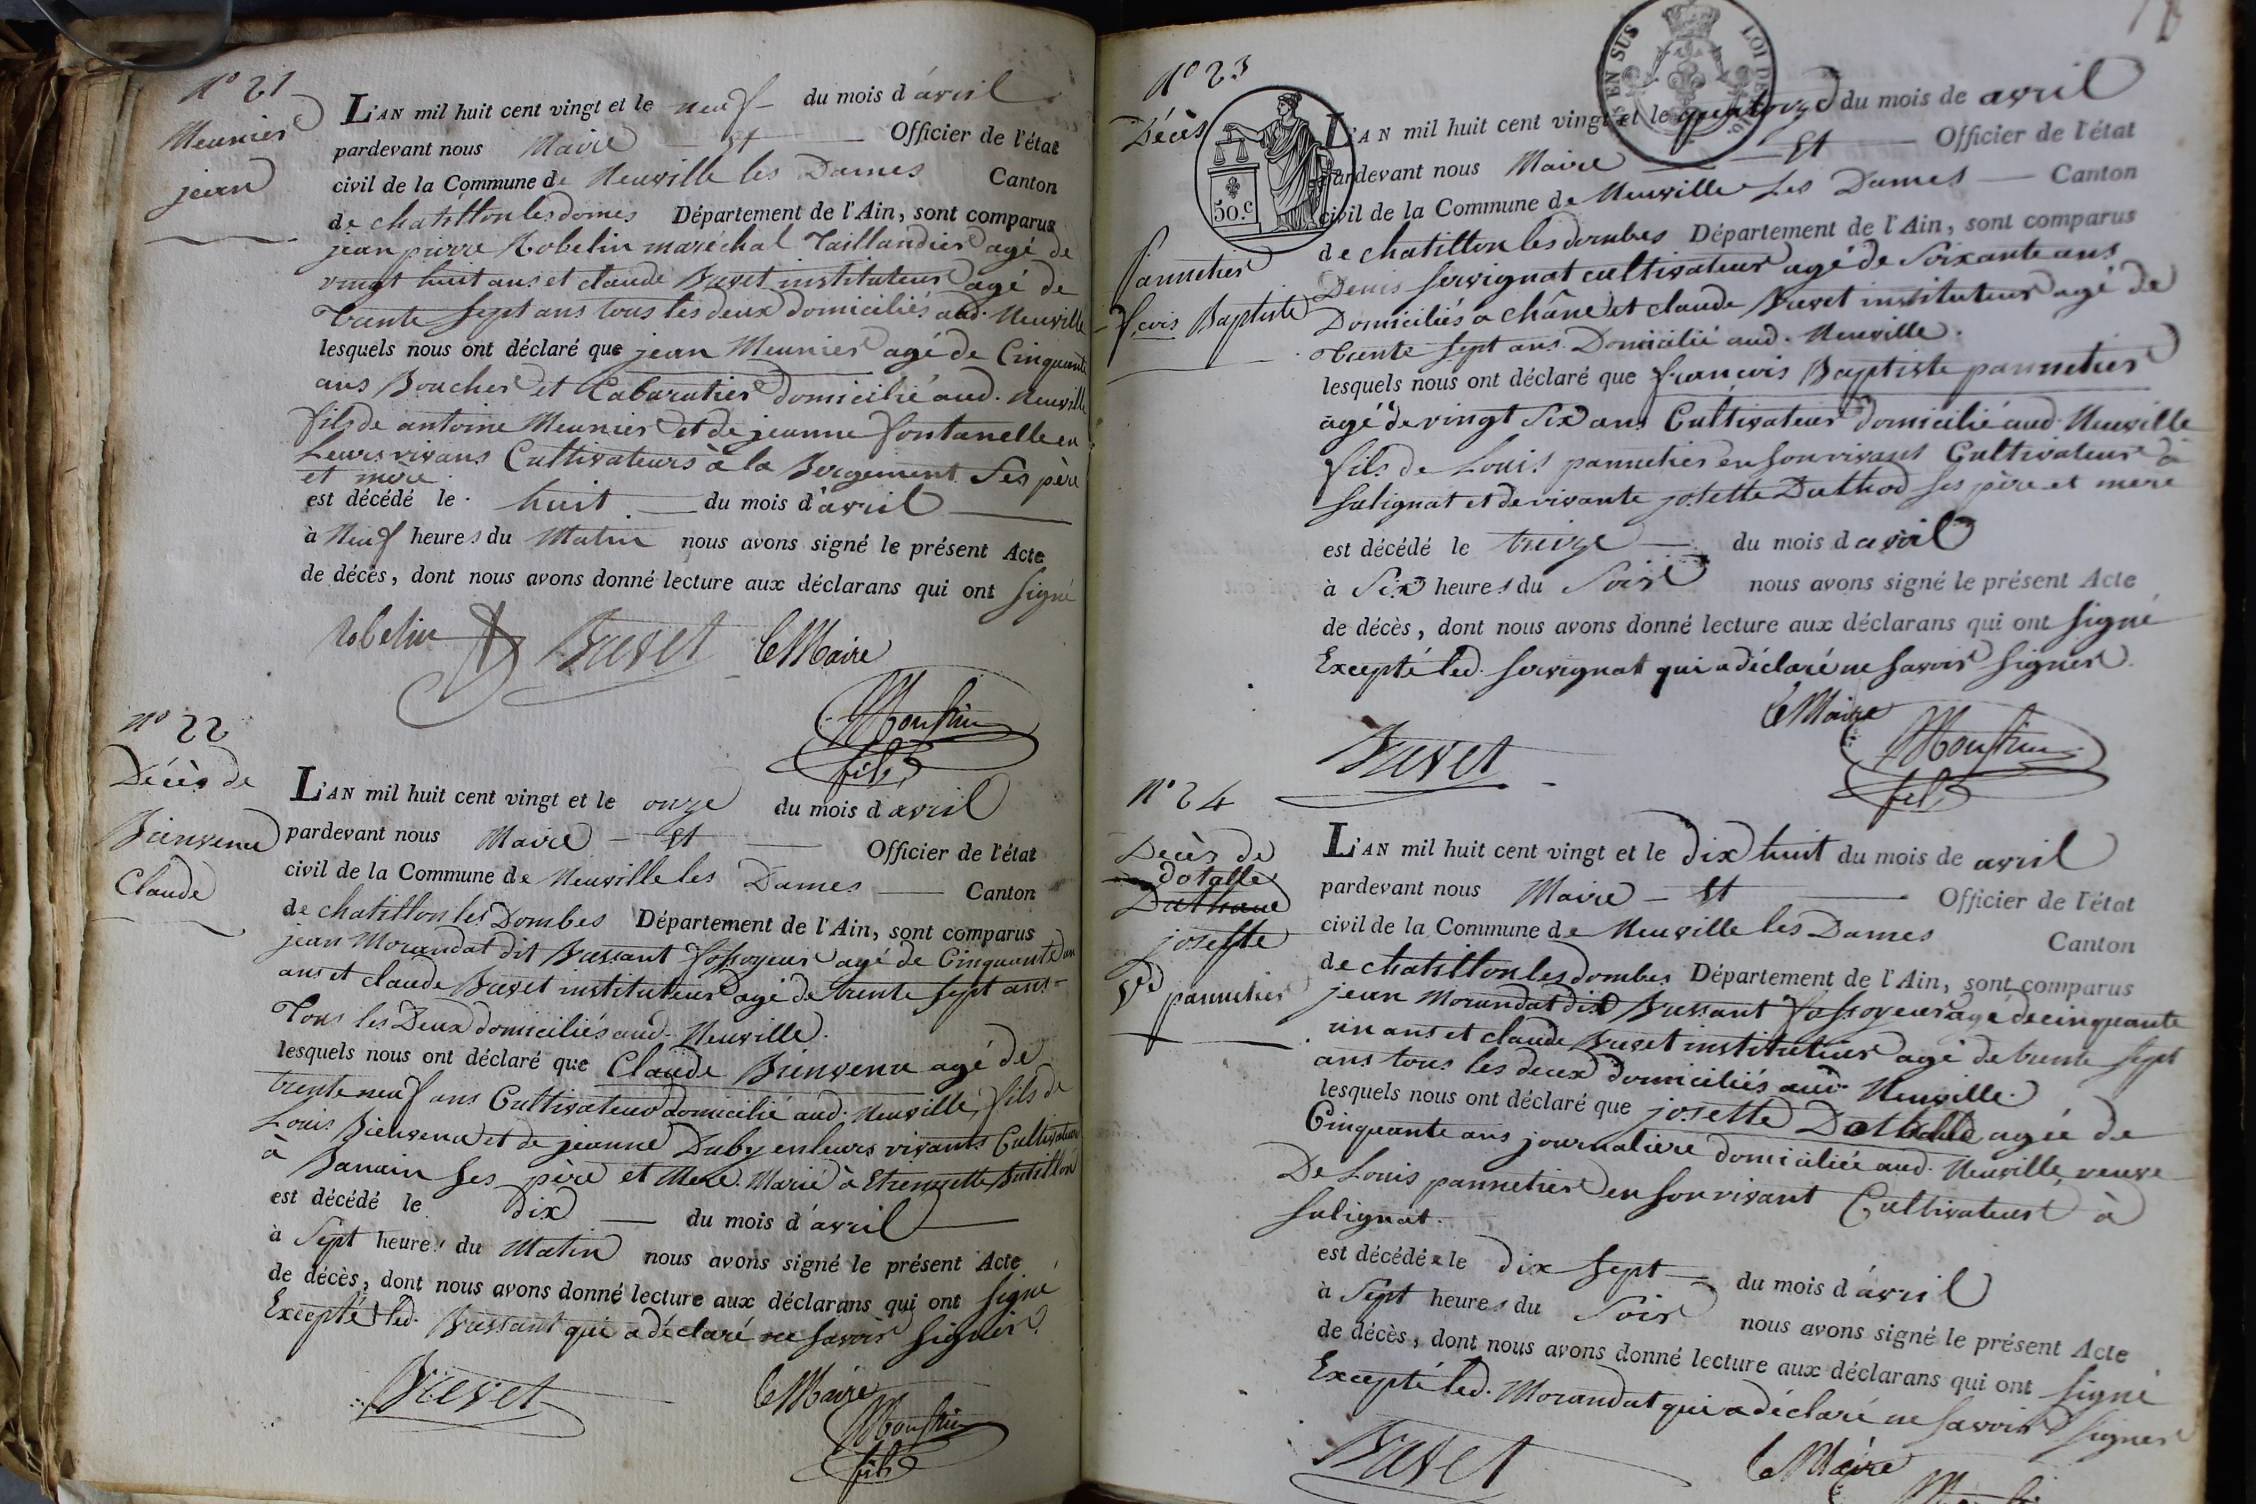 N° 21
Meunier
jean
L'AN mil huit cent vingt et le neuf du mois d'avril
pardevant nous Maire et Officier de l'état
civil de la Commune de Neuville les Dames Canton
de chatillon les domes Département de l'Ain, sont comparus
jean pierre Robelin maréchal Taillandier agé de
vingt huit ans et claude Buvet instituteur agé de
Trente Sept ans tous les deux domiciliés aud. Neuville
lesquels nous ont déclaré que jean Meunier agé de Cinquante
ans Boucher et Cabaratier domicilié aud. Neuville
fils de antoine Meunier et de jeanne fontanelle en
Leurs vivans Cultivateurs à la Bergement Ses père
et mère.
est décédé le huit du mois d'avril
à Neuf heures du Matin nous avons signé le présent Acte
de décès, dont nous avons donné lecture aux déclarans qui ont signé
Robelin Buvet le Maire
fils
N° 22
Décès de
Bienvenu
Claude
L'AN mil huit cent vingt et le onze du mois d'avril
pardevant nous Maire et Officier de l'état
civil de la Commune de Neuville les Dames Canton
de chatillon les Dombes Département de l'Ain, sont comparus
jean Morandat dit Bressant fossoyeur agé de Cinquante un
ans et claude Buvet instituteur agé de trente sept ans
Tous les Deux domiciliés aud. Neuville.
lesquels nous ont déclaré que Claude Bienvenu agé de
trente neuf ans Cultivateur domicilié aud. Neuville, fils de
Louis Bienvenu et de jeanne Duby en leurs vivants Cultivateurs
à Banain ses père et Mere. Marié à Etiennette Butillon
est décédé le dix du mois d'avril
à Sept heures du Matin nous avons signé le présent Acte
de décès, dont nous avons donné lecture aux déclarans qui ont signé
Excepté led. Bressant qui a déclaré ne savoir signer.
Buvet le Maire
fils
N° 23
Décès
50.c
EN SUS LOI DE
pannetier
f.cois Baptiste
L'AN mil huit cent vingt et le quatorze du mois de avril
pardevant nous Maire et Officier de l'état
civil de la Commune de Neuville Les Dames Canton
de chatillon les dombes Département de l'Ain, sont comparus
Denis servignat cultivateur agé de Soixante ans
Domiciliés a châne et claude Buvet instituteur agé de
Trente Sept ans Domicilié aud. Neuville.
lesquels nous ont déclaré que françois Baptiste pannetier
agé de vingt Six ans Cultivateur domicilié aud. Neuville
fils de Louis pannetier en son vivant Cultivateur à
salignat et de vivante josette Duthod ses père et mere
est décédé le treize du mois d avril
à Six heures du Soir nous avons signé le présent Acte
de décès, dont nous avons donné lecture aux déclarans qui ont signé
Excepté led. servignat qui a déclaré ne savoir signer.
le Maire
Buvet
fils
N° 24
Decès de
dotalle
josette
Ve pannetier
L'AN mil huit cent vingt et le dix huit du mois de avril
pardevant nous Maire et Officier de l'état
civil de la Commune de Neuville les Dames Canton
de chatillon les dombes Département de l'Ain, sont comparus
jean Morandat dit Bressant fossoyeur agé de cinquante
un ans et claude Buvet instituteur agé de trente sept
ans tous les deux domiciliés aud. Neuville.
lesquels nous ont déclaré que josette agée de
Cinquante ans journaliere domiciliée aud. Neuville, veuve
De Louis pannetier en son vivant Cultivateur à
salignat.
est décédée le dix sept du mois d'avril
à Sept heures du Soir nous avons signé le présent Acte
de décès, dont nous avons donné lecture aux déclarans qui ont signé
Excepté led. Morandat qui a déclaré ne savoir signer
Buvet le Maire